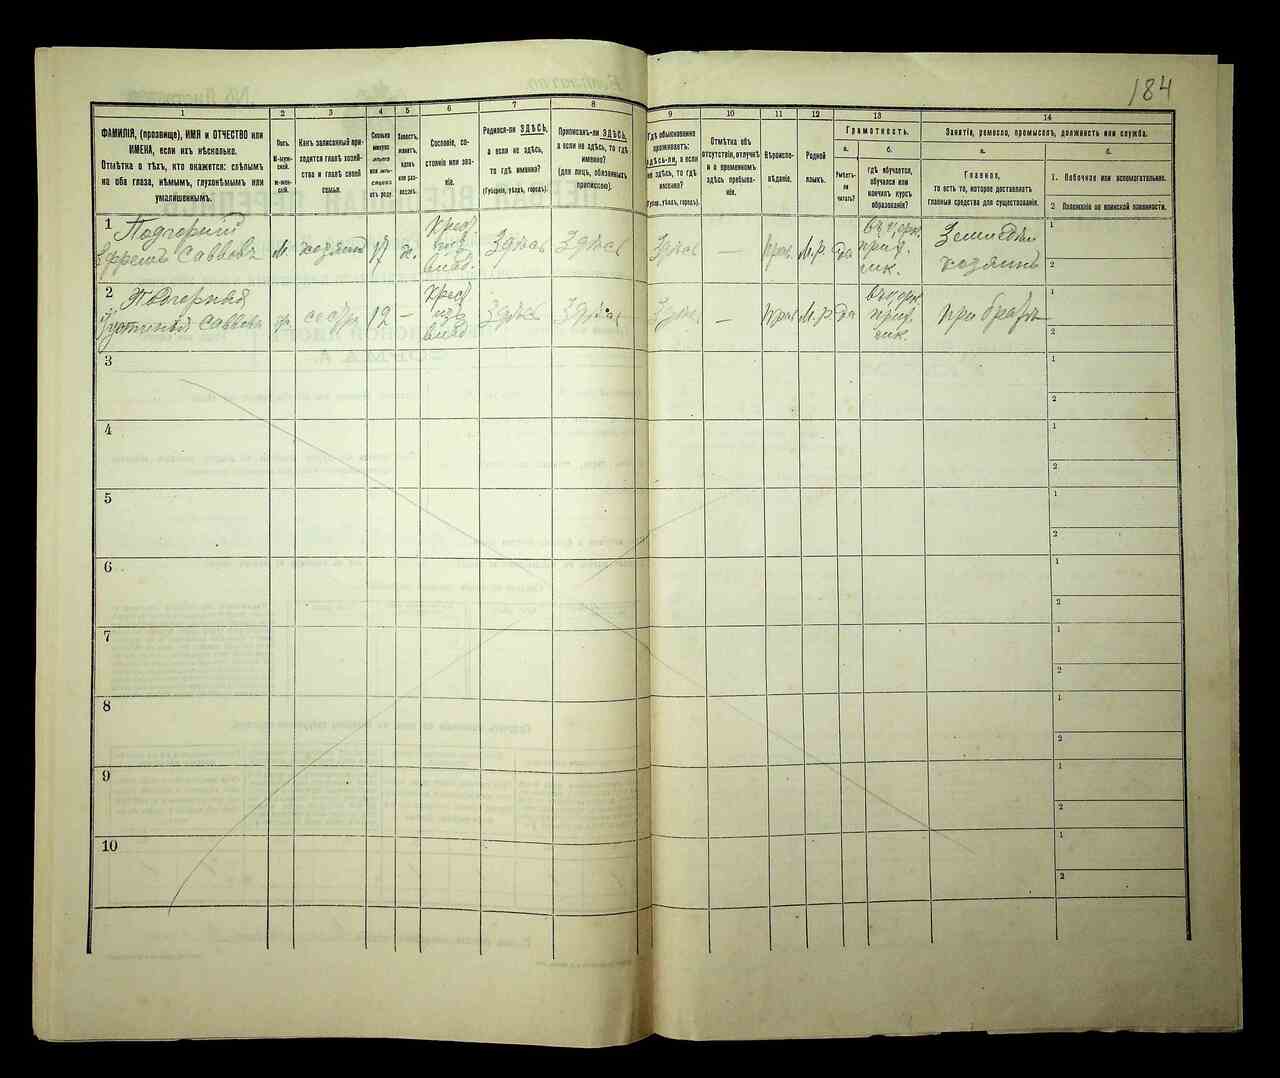 184
1
2
3
4
5
6
7
8
9
10
11
12
13
14
ФАМИЛІЯ, (прозвище), ИМЯ и ОТЧЕСТВО или
ИМЕНА, если ихъ нѣсколько.
Отмѣтка о тѣхъ, кто окажется: слѣпымъ
на оба глаза, нѣмымъ, глухонѣмымъ или
умалишеннымъ.
Полъ.
Какъ записанный при-
ходится главѣ хозяй-
ства и главѣ своей
семьи.
Сколько
минуло
лѣтъ
отъ роду.
Сословіе, со-
стояніе или зва-
ніе.
Родился-ли ЗДѢСЬ,
а если не здѣсь,
то гдѣ именно?
(Губернія, уѣздъ, городъ).
Приписанъ-ли ЗДѢСЬ,
а если не здѣсь, то гдѣ
именно?
(для лицъ, обязанныхъ
припискою).
Гдѣ обыкновенно
проживаетъ:
здѣсь-ли, а если
не здѣсь, то гдѣ
именно?
(Губерн., уѣздъ, городъ).
Отмѣтка объ
отсутствіи, отлучкѣ
и о временномъ
здѣсь пребыва-
ніи.
Вѣроиспо-
вѣданіе.
Родной
языкъ.
Грамотность.
а.
Умѣетъ-
ли
читать?
б.
гдѣ обучается,
обучался или
кончилъ курсъ
образованія?
Занятія, ремесло, промыселъ, должность или служба.
а.
Главное,
то есть то, которое доставляетъ
главныя средства для существованія.
б.
1. Побочное или вспомогательное.
2 Положеніе по воинской повинности.
1 Подгорный
Ефремъ Саввовъ
М. хозяинъ 17 х.
Крест.
изъ
влад.
Здѣсь Здѣсь Здѣсь — Прав. М.р. да
въ церк.
прих.
шк.
Земледѣл
хозяинъ
1
2
2 Подгорная
Саввова
ж. сестра 12 —
Крест
изъ
влад.
Здѣсь Здѣсь Здѣсь — Прав М.р да
въ церк.
прих.
шк.
при братѣ
1
2
3
1
2
4
1
2
5
1
2
6
1
2
7
1
2
8
1
2
9
1
2
10
1
2